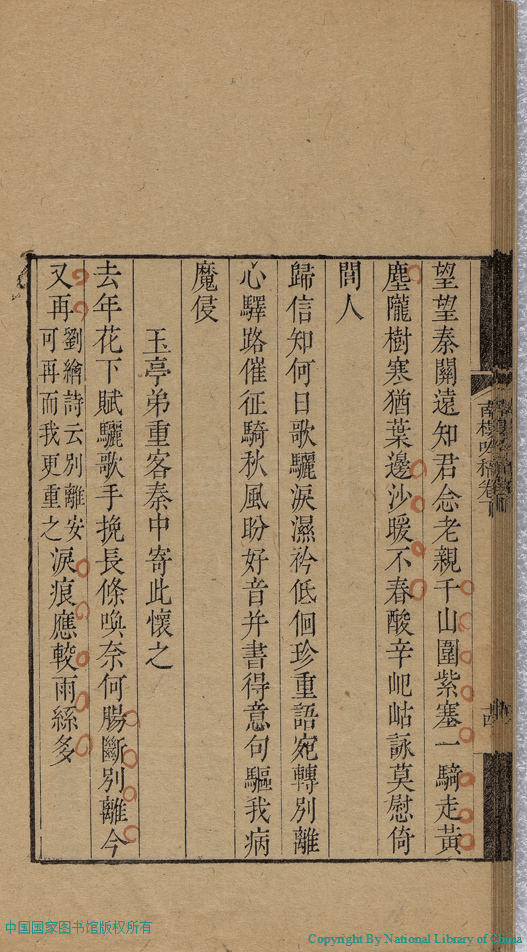 望望秦關遠知君念老親千山圍紫塞一騎走黃
塵隴樹寒猶葉邊沙暖不春酸辛屺岵詠莫慰倚
閭人
歸信知何日歌驪淚濕衿低佪珍重語宛轉別離
心驛路催征騎秋風盼好音并書得意句驅我病
魔侵
玉亭弟重客秦中寄此懷之
去年花下賦驪歌手挽長條喚奈何腸斷別離今
又再劉繪詩云別離安可再而我更重之淚痕應較雨絲多
南樓吟稿卷下
中国国家图书馆版权所有
Copyright By National Library of China